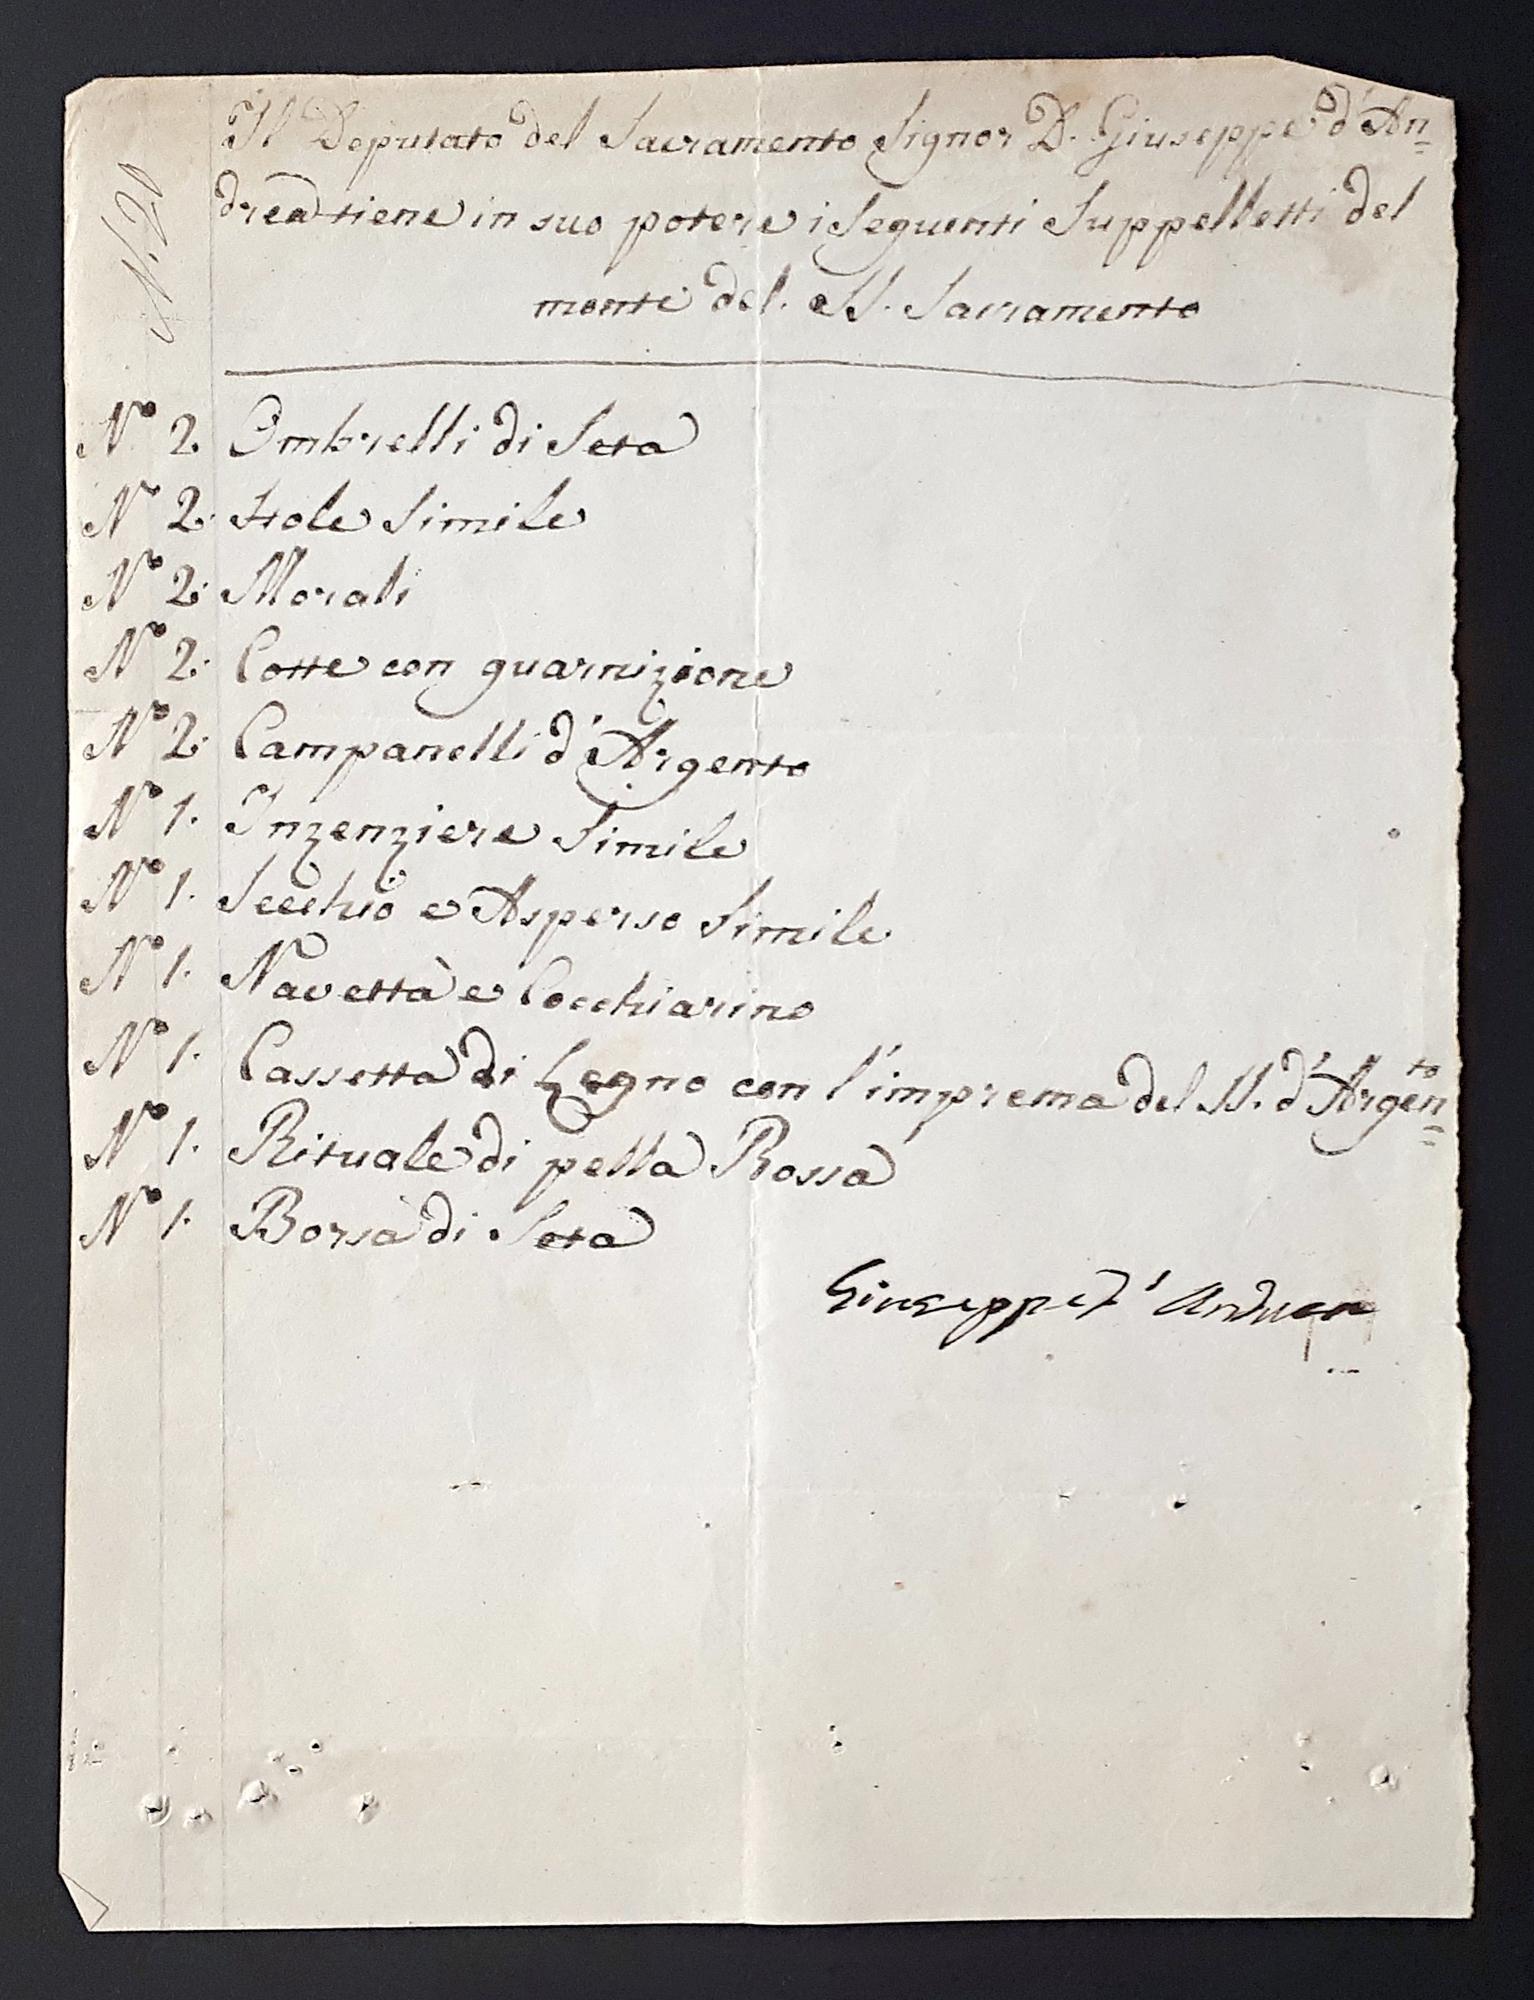 N. 20
Il Deputato del Sacramento Signor D. Giuseppe d'An=
drea tiene in suo potere i Seguenti Suppelletti del
monte del. SS. Sacramento
N° 2. Ombrelli di Seta
N° 2. Stole Simile
N° 2. Morali
N° 2. Cotte con guarnizione
N° 2. Campanelli d'Argento
N° 1. Inzenziere Simile
N° 1. Secchio e Asperso Simile
N° 1. Navettà e Cocchiarino
N° 1. Cassetta di Legno con l'imprema del SS. d'Argen=to
N° 1. Rituale di pella Rossa
N° 1. Borsa di Seta
Giuseppe d'Andrea